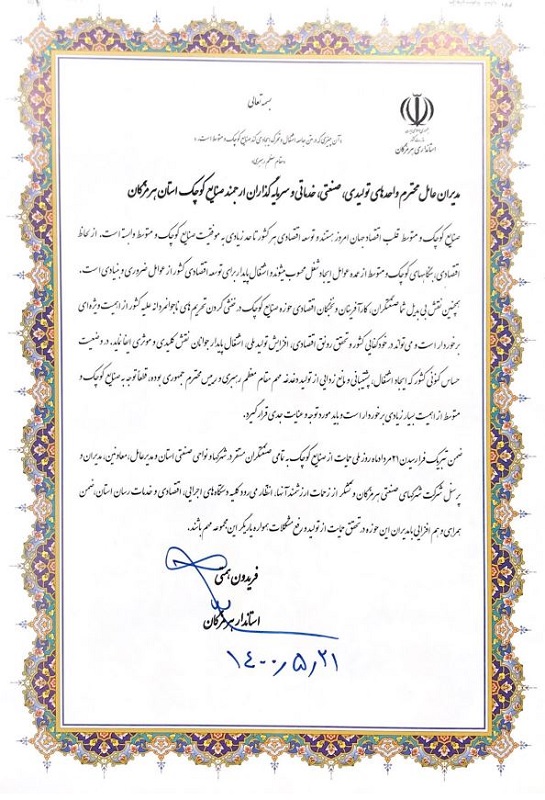 بسمه تعالی
استانداری هرمزگان
«آن چیزی که در متن جامعه اشتغال و تحرک ایجاد می کند صنایع کوچک و متوسط است.»
«مقام معظم رهبری»
مدیران عامل محترم واحدهای تولیدی، صنعتی، خدماتی و سرمایه گذاران ارجمند صنایع کوچک استان هرمزگان
صنایع کوچک و متوسط قلب اقتصاد جهان امروز هستند و توسعه اقتصادی هر کشور تا حد زیادی به موفقیت صنایع کوچک و متوسط وابسته است. از لحاظ
اقتصادی، بنگاههای کوچک و متوسط از عمده عوامل ایجاد شغل محسوب میشوند و اشتغال پایدار برای توسعه اقتصادی کشور از عوامل ضروری و بنیادی است.
همچنین نقش بی بدیل شما صنعتگران، کارآفرینان و نخبگان اقتصادی حوزه صنایع کوچک در خنثی کردن تحریم های ناجوانمردانه علیه کشور از اهمیت ویژه ای
برخوردار است و می تواند در خودکفایی کشور و تحقق رونق اقتصادی، افزایش تولید ملی، اشتغال پایدار جوانان نقش کلیدی و موثری ایفا نماید. در وضعیت
حساس کنونی کشور که ایجاد اشتغال، پشتیبانی و مانع زدایی از تولید دغدغه مهم مقام معظم رهبری و رییس محترم جمهوری بوده، قطعا توجه به صنایع کوچک و
متوسط از اهمیت بسیار زیادی برخوردار است و باید مورد توجه و عنایت جدی قرار گیرد.
ضمن تبریک فرا رسیدن ۲۱ مرداد ماه روز ملی حمایت از صنایع کوچک به تمامی صنعتگران مستقر در شهرکها و نواحی صنعتی استان و مدیرعامل، معاونین، مدیران و
پرسنل شرکت شهرکهای صنعتی هرمزگان و تشکر از زحمات ارزشمند آنها، انتظار می رود کلیه دستگاه های اجرایی، اقتصادی و خدمات رسان استان، ضمن
همراهی و هم افزایی با مدیران این حوزه در تحقق حمایت از تولید و رفع مشکلات همواره یاریگر این مجموعه مهم باشند.
فریدون همتی
استاندار هرمزگان
۱۴۰۰٫۵٫۲۱